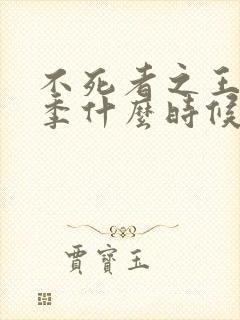 不死者之王
季什麼時候
賈寶玉